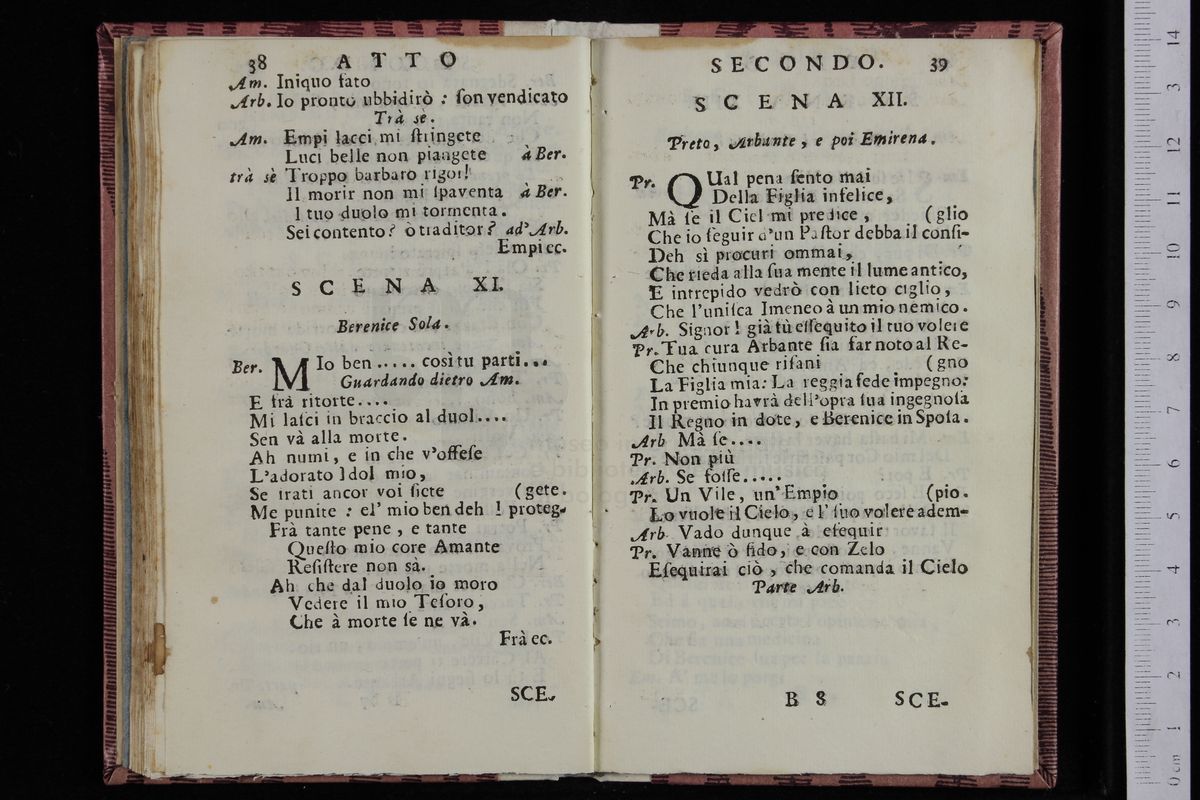 38 ATTO
Am. Iniquo fato
Arb. Io pronto ubbidirò : ſon vendicato
Trà sè.
Am. Empi lacci mi ſtringete
Luci belle non piangete à Ber.
trà sè Troppo barbaro rigor!
Il morir non mi ſpaventa à Ber.
l tuo duolo mi tormenta.
Sei contento? ò traditor? ad'Arb.
Empi ec.
SCENA XI.
Berenice Sola.
Ber. MIo ben ..... così tu parti...
Guardando dietro Am.
E frà ritorte....
Mi laſci in braccio al duol....
Sen và alla morte.
Ah numi, e in che v'offeſe
L'adorato Idol mio,
Se irati ancor voi ſiete (gete.
Me punite : el' mio ben deh ! proteg-
Frà tante pene, e tante
Queſto mio core Amante
Reſiſtere non sà.
Ah che dal duolo io moro
Vedere il mio Teſoro,
Che à morte ſe ne và.
Frà ec.
SCE-
SECONDO. 39
SCENA XII.
Preto, Arbante, e poi Emirena.
Pr. QUal pena ſento mai
Della Figlia infelice,
Mà ſe il Ciel mi predice, (glio
Che io ſeguir d'un Paſtor debba il conſi-
Deh sì procuri ommai,
Che rieda alla ſua mente il lume antico,
E intrepido vedrò con lieto ciglio,
Che l'uniſca Imeneo à un mio nemico.
Arb. Signor ! già tù eſſequito il tuo volere
Pr. Tua cura Arbante ſia far noto al Re-
Che chiunque riſani (gno
La Figlia mia: La reggia fede impegno:
In premio havrà dell'opra ſua ingegnoſa
Il Regno in dote, e Berenice in Spoſa.
Arb Mà ſe....
Pr. Non più
Arb. Se foſſe.....
Pr. Un Vile, un' Empio (pio.
Lo vuole il Cielo, e l' ſuo volere adem-
Arb. Vado dunque à eſequir
Pr. Vanne ò fido, e con Zelo
Eſequirai ciò, che comanda il Cielo
Parte Arb.
B 8 SCE-